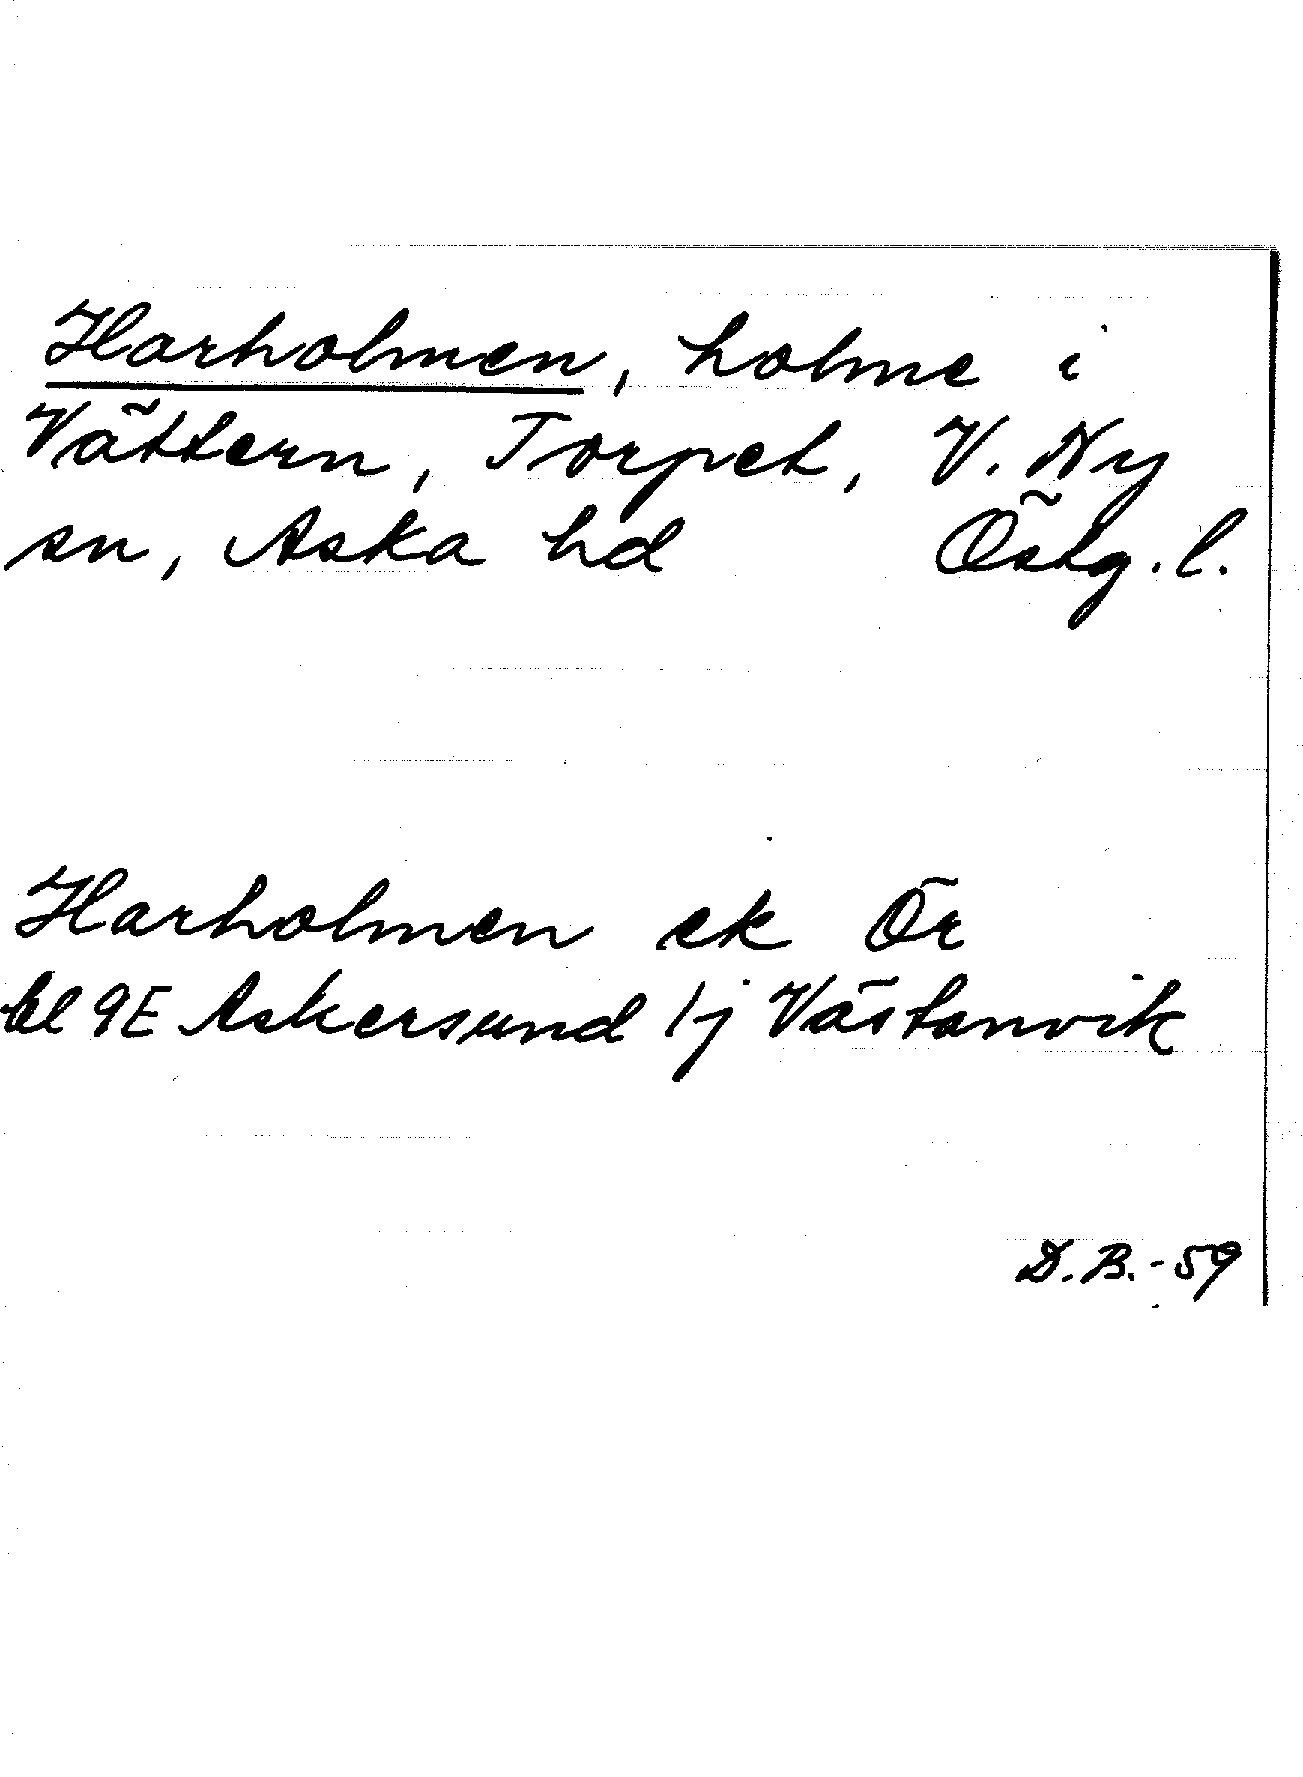 Harholmen, holme i
Vättern, Torpet, V. Ny
sn, Aska hd Östg. l.
Harholmen ek Ör
bl 9E Askersund 1j Västanvik
D. B. - 59